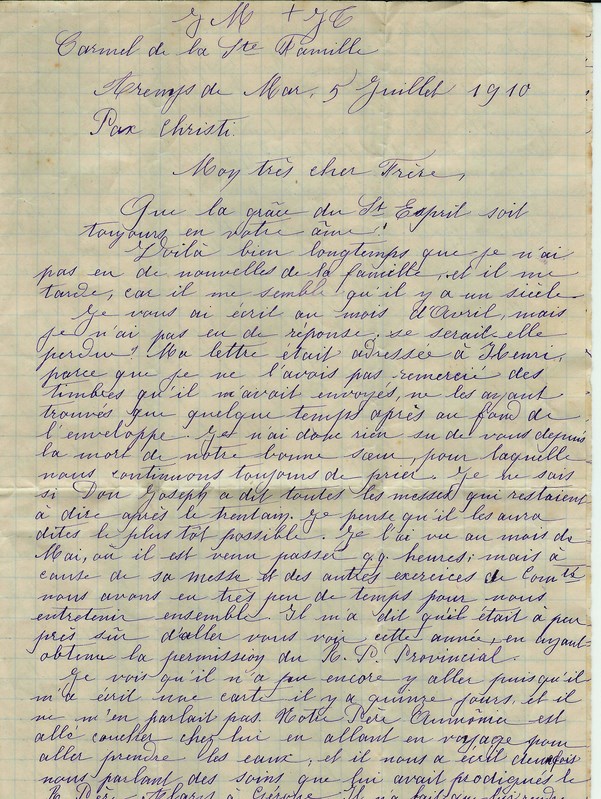 J M + J T
Carmel de la Ste Famille
Arenys de Mar, 5 Juillet 1910
Pax Christi.
Mon très cher Frère,
Que la grâce du St Esprit soit
toujours en votre âme!
Voilà bien longtemps que je n'ai
pas eu de nouvelles de la famille, et il me
tarde, car il me semble qu'il y a un siècle
Je vous ai écrit au mois d'Avril, mais
je n'ai pas eu de réponse, se serait-elle
perdue? Ma lettre était adressée à Henri,
parce que je ne l'avais pas remercié des
timbres qu'il m'avait envoyés, ne les ayant
trouvés que quelque temps après au fond de
l'enveloppe. Je n'ai donc rien su de vous depuis
la mort de notre bonne sœur, pour laquelle
nous continuons toujours de prier. Je ne sais
si Don Joseph a dit toutes les messes qui restaient
à dire après le trentain. Je pense qu'il les aura
dites le plus tôt possible. Je l'ai vu au mois de
Mai, où il est venu passer qq. heures; mais à
cause de sa messe et des autres exercices de Comté
nous avons eu très peu de temps pour nous
entretenir ensemble. Il m'a dit qu'il était à peu
près sûr d'aller vous voir cette année, en ayant
obtenu la permission du R. P. Provincial.
Je vois qu'il n'a pu encore y aller puisqu'il
m'a écrit une carte il y a quinze jours, et il
ne m'en parlait pas. Notre Père est
allé coucher chez lui en allant en voyage pour
aller prendre les eaux, et il nous a écrit deux fois
nous parlant des soins que lui avait prodigués le
R. Père à Gérone. Il